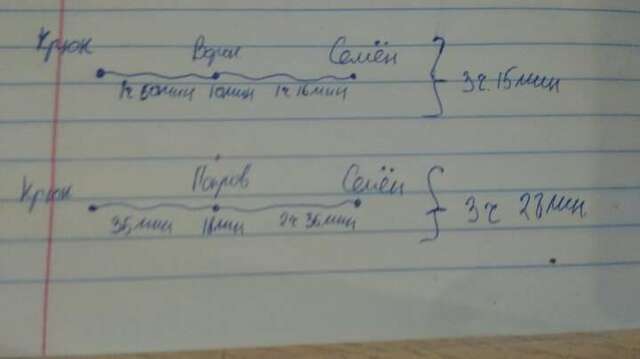 Крюк Ворон Семён
1ч 50мин 10мин 1ч 16мин } 3ч 15мин
Крюк Покров Семён
35мин 18мин 2ч 36мин } 3ч 28мин